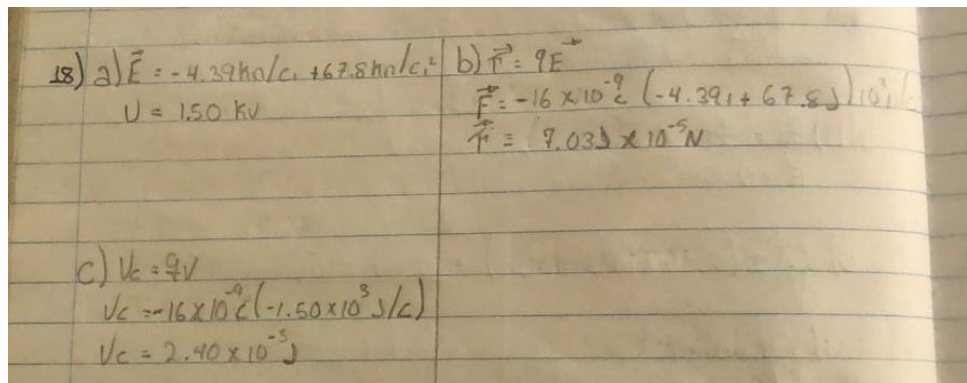 18) a) E⃗ = -4.39kn/c₁ + 67.8kn/c₁²
U = 1.50 KV
b) F⃗ = qE⃗
F⃗ = -16 x 10⁻⁹c (-4.39ı + 67.8J) 10³
F⃗ = 7.03J x 10⁻⁵N
c) Vc = qV
Vc = -16x10⁻⁹c (-1.50x10³ J/c)
Vc = 2.40 x 10⁻⁵J